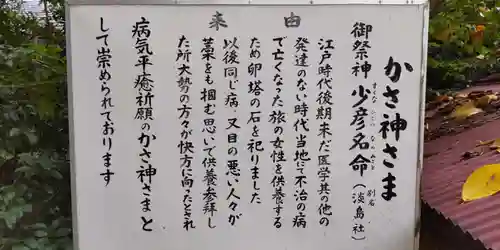 かさ神さま
御祭神 少彦名命 別名(淡島社)
すくなひこなのみこと
由来
江戸時代後期末だ医学其の他の
発達のない時代当地にて不治の病
で亡くなった旅の女性を供養する
ため卵塔の石を祀りました
以後同じ病、又目の悪い人々が
藁をも掴む思いで供養参拝し
た所大勢の方々が快方に向ったとされ
病気平癒祈願のかさ神さまと
して崇められております